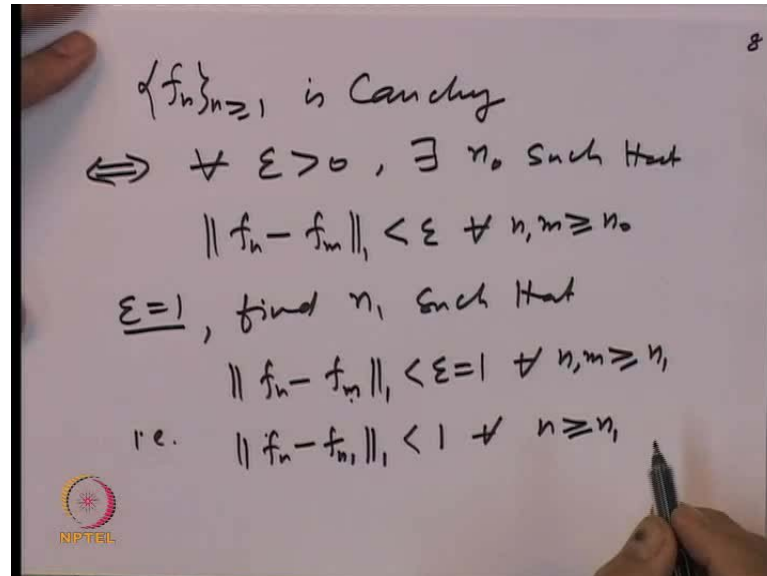 8
{fₙ}ₙ≥₁ is Cauchy
⟺ ∀ ε>0, ∃ n₀ such that
‖fₙ − fₘ‖₁ < ε ∀ n,m ≥ n₀
ε=1, find n₁ such that
‖fₙ − fₘ‖₁ < ε=1 ∀ n,m ≥ n₁
i.e. ‖fₙ − fₙ₁‖₁ < 1 ∀ n ≥ n₁
NPTEL